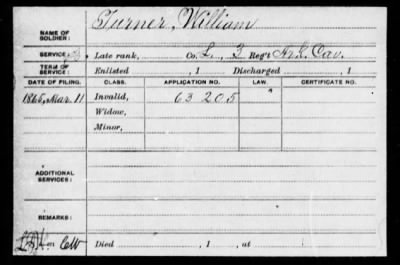 NAME OF SOLDIER: Turner, William
SERVICE: Late rank, Co. L, 3 Reg't Ark. Cav.
TERM OF SERVICE: Enlisted , 1 Discharged , 1
DATE OF FILING. CLASS. APPLICATION NO. LAW. CERTIFICATE NO.
1865, Mar. 11 Invalid, 63 205
Widow,
Minor,
ADDITIONAL SERVICES:
REMARKS:
Died , 1 , at